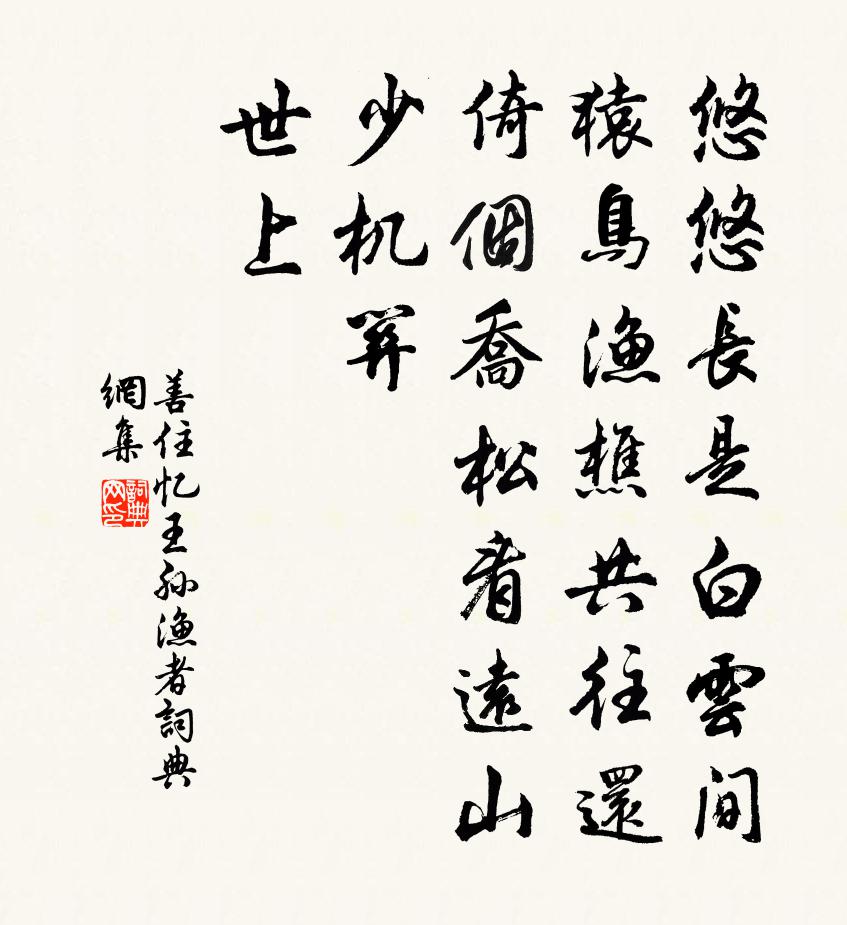 悠悠長是白雲間
猿鳥漁樵共往還
倚個喬松看遠山
少机關
世上
善住忆王孙漁者詞典
網集
詞典
网印